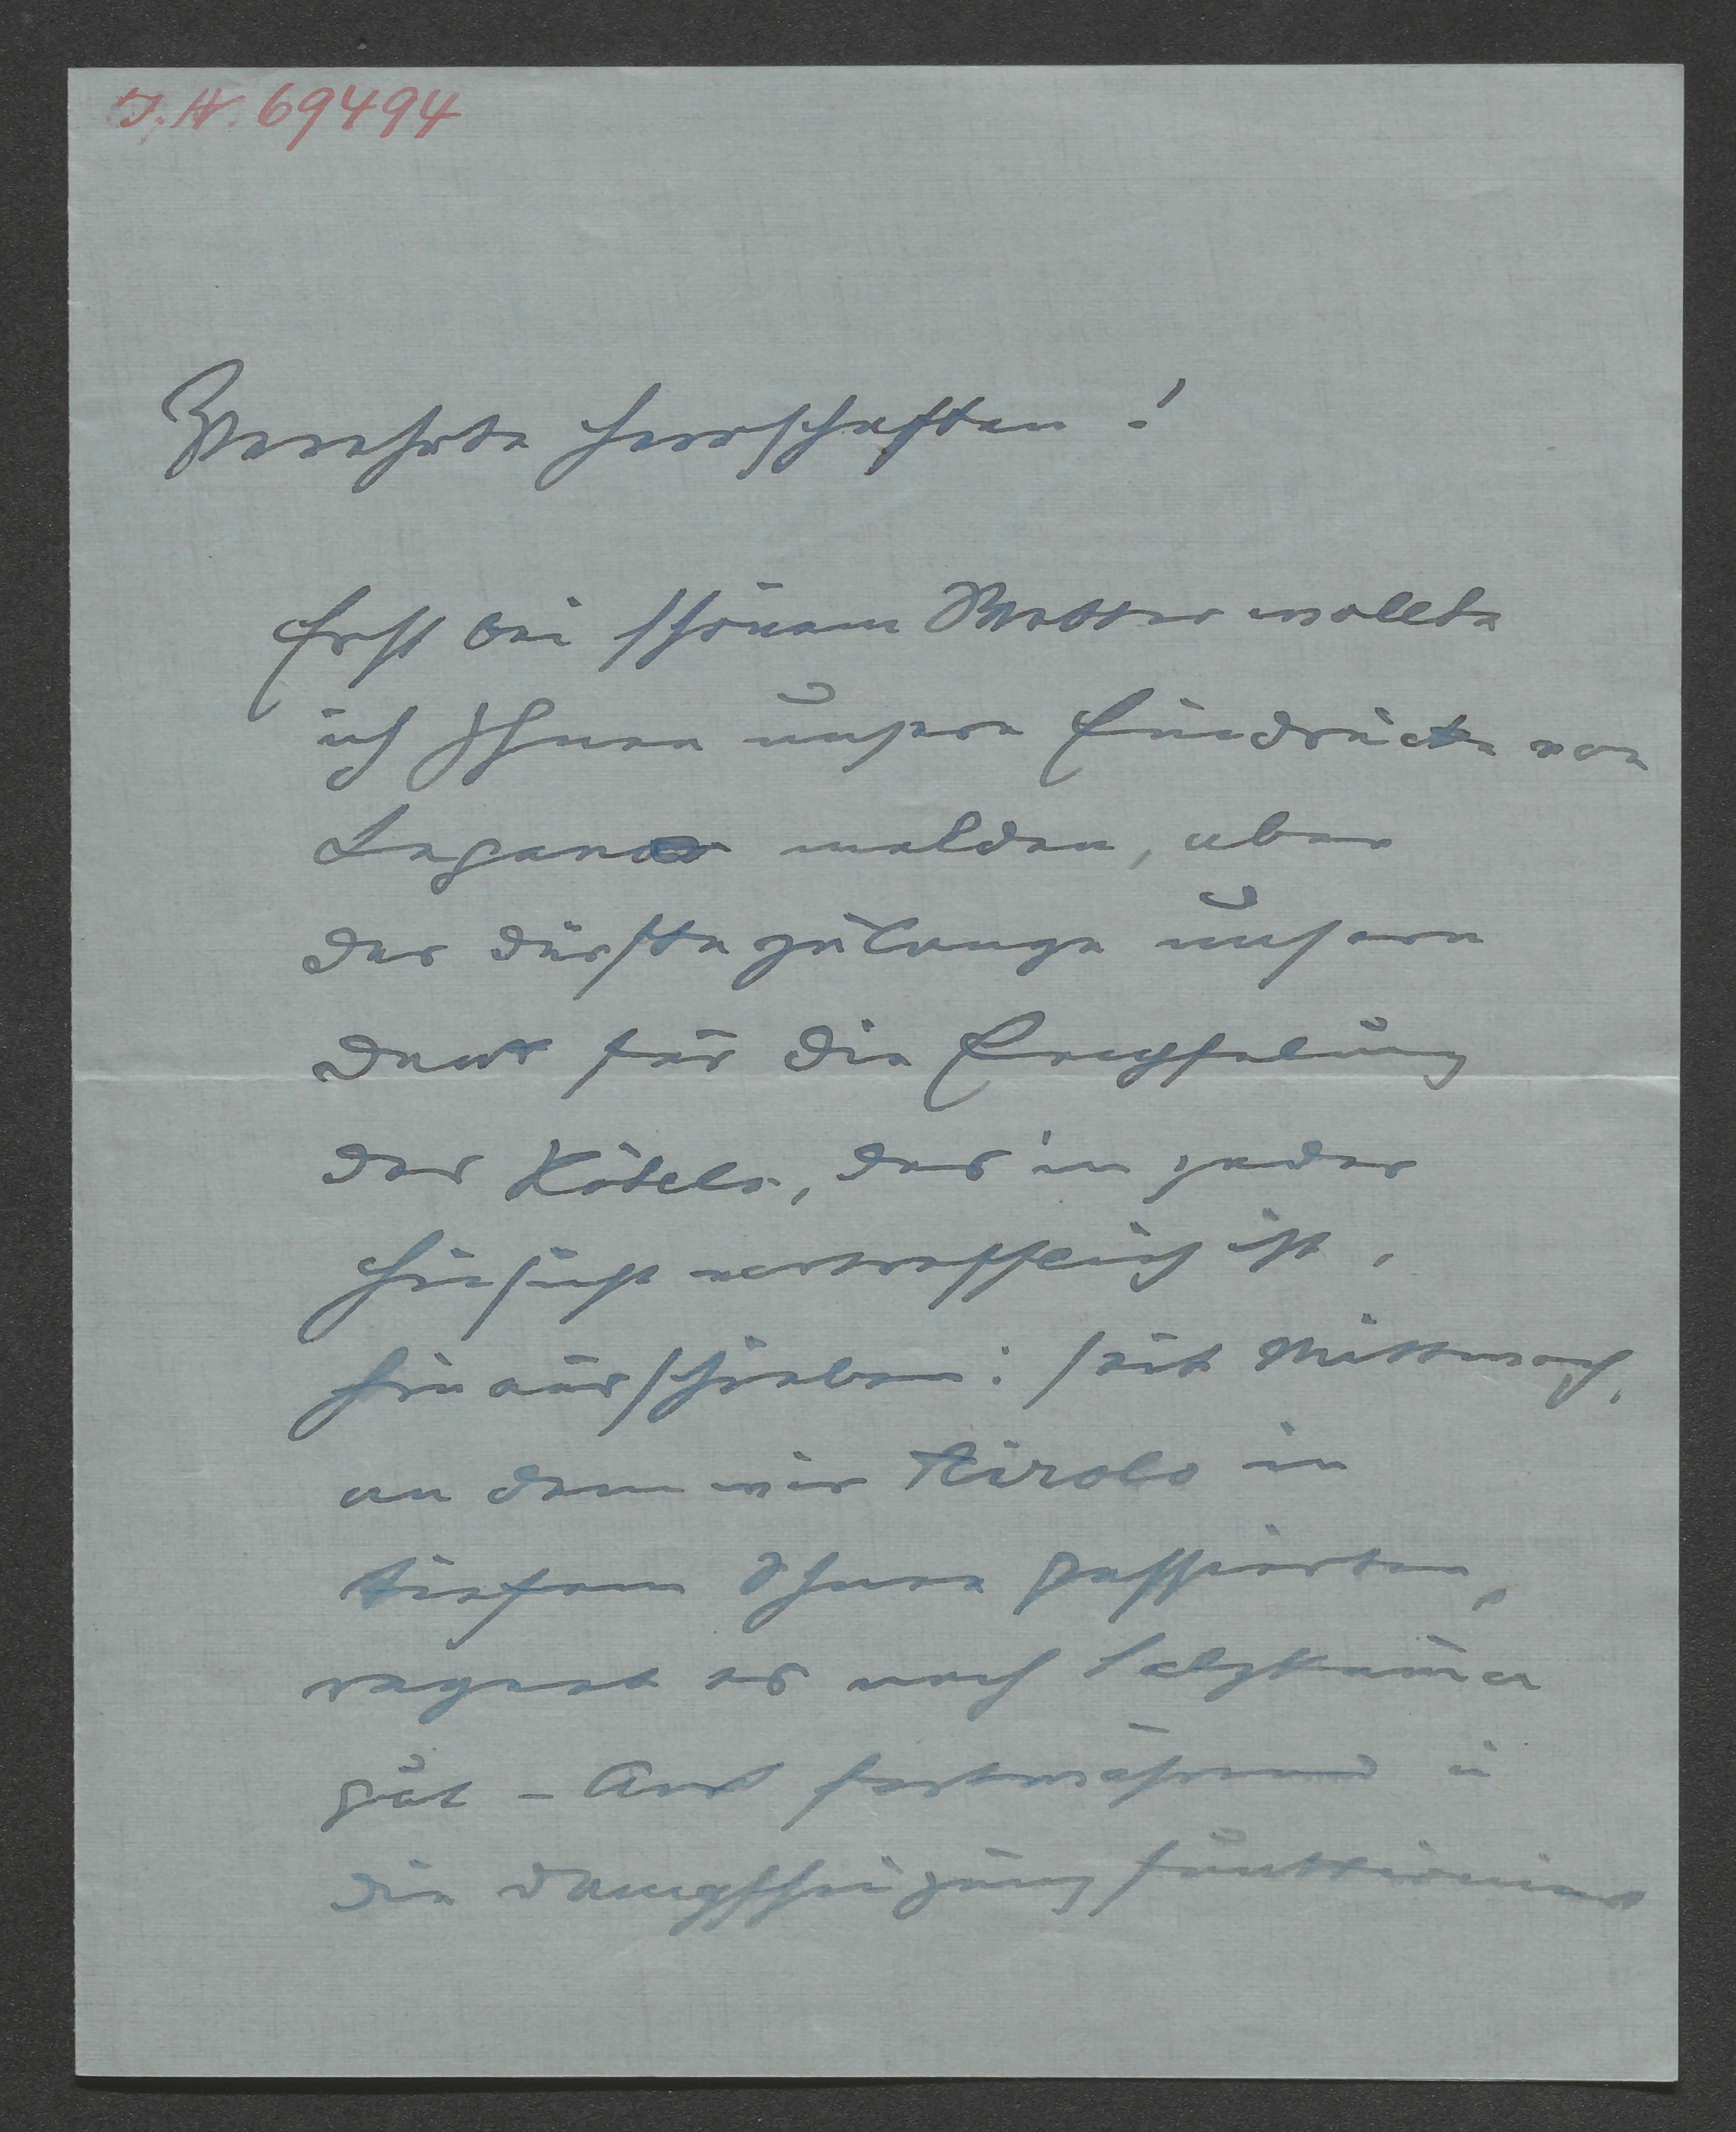 J. N. 69494
Verehrte Herrschaften!
Erst bei schönem Wetter wollte
ich Ihnen unsere Eindrücke von
Lugano melden, aber
das dürfte zulange unsern
Dank für die Empfelung
des Hôtels, das in jeder
Hinsicht vortrefflich ist,
hinausschieben: seit Mittwoch,
an dem wir Airolo in
tiefem Schnee passierten,
regnet es nach Salzkammer
gut-Art fortwährend u
die Dampfheizung funktioniert